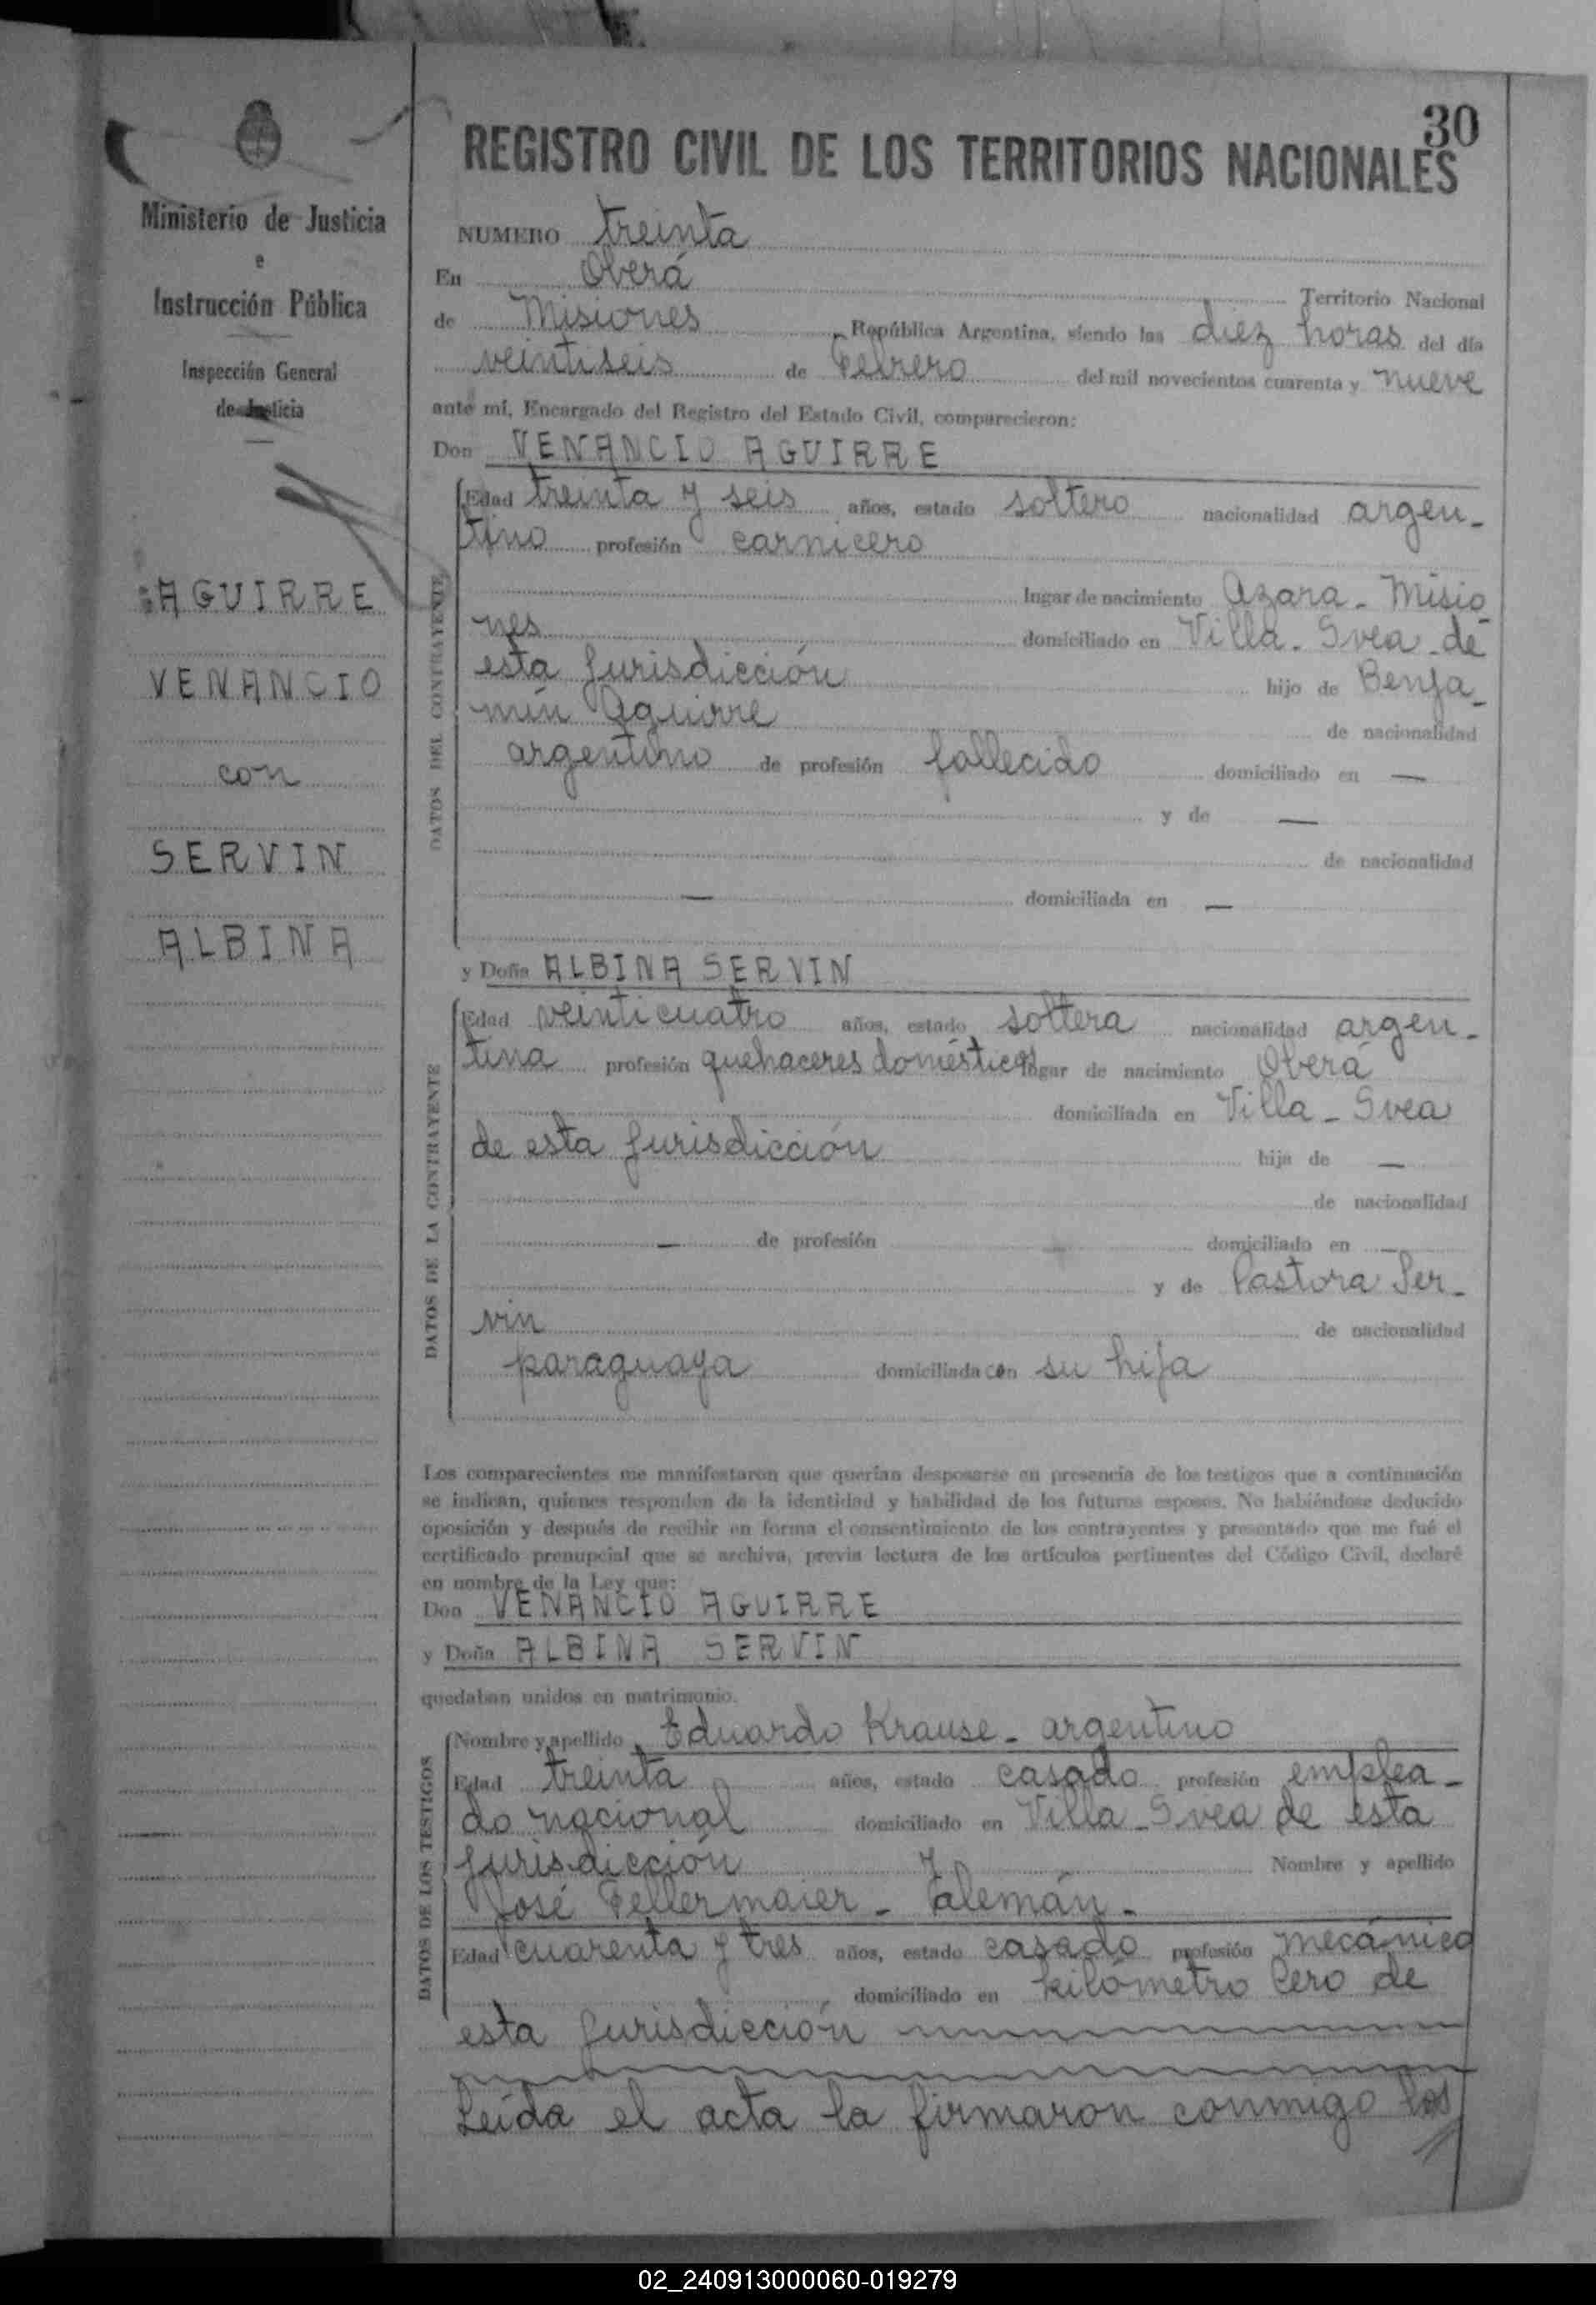 30
REGISTRO CIVIL DE LOS TERRITORIOS NACIONALES
Ministerio de Justicia
e
Instrucción Pública
Inspección General
de Justicia
AGUIRRE
VENANCIO
con
SERVIN
ALBINA
NUMERO treinta
En Oberá Territorio Nacional
de Misiones República Argentina, siendo las diez horas del día
veintiseis de Febrero del mil novecientos cuarenta y nueve
ante mí, Encargado del Registro del Estado Civil, comparecieron:
Don VENANCIO AGUIRRE
DATOS DEL CONTRAYENTE
Edad treinta y seis años, estado soltero nacionalidad argen-
tino profesión carnicero
lugar de nacimiento Azara - Misio
nes domiciliado en Villa - Svea - de
esta jurisdicción hijo de Benja-
mín Aguirre de nacionalidad
argentino de profesión fallecido domiciliado en —
y de —
de nacionalidad
— domiciliada en —
y Doña ALBINA SERVIN
DATOS DE LA CONTRAYENTE
Edad veinticuatro años, estado soltera nacionalidad argen-
tina profesión quehaceres domésticos lugar de nacimiento Oberá
domiciliada en Villa - Svea
de esta jurisdicción hija de —
de nacionalidad
— de profesión — domiciliado en —
y de Pastora Ser-
vin de nacionalidad
paraguaya domiciliada con su hija
Los comparecientes me manifestaron que querían desposarse en presencia de los testigos que a continuación
se indican, quienes responden de la identidad y habilidad de los futuros esposos. No habiéndose deducido
oposición y después de recibir en forma el consentimiento de los contrayentes y presentado que me fué el
certificado prenupcial que se archiva, previa lectura de los artículos pertinentes del Código Civil, declaré
en nombre de la Ley que:
Don VENANCIO AGUIRRE
y Doña ALBINA SERVIN
quedaban unidos en matrimonio.
DATOS DE LOS TESTIGOS
Nombre y apellido Eduardo Krause - argentino
Edad treinta años, estado casado profesión emplea-
do nacional domiciliado en Villa - Svea de esta
jurisdicción y Nombre y apellido
José Fellermaier - alemán -
Edad cuarenta y tres años, estado casado profesión mecánico
domiciliado en kilómetro Cero de
esta jurisdicción
Leída el acta la firmaron conmigo los
02_240913000060-019279